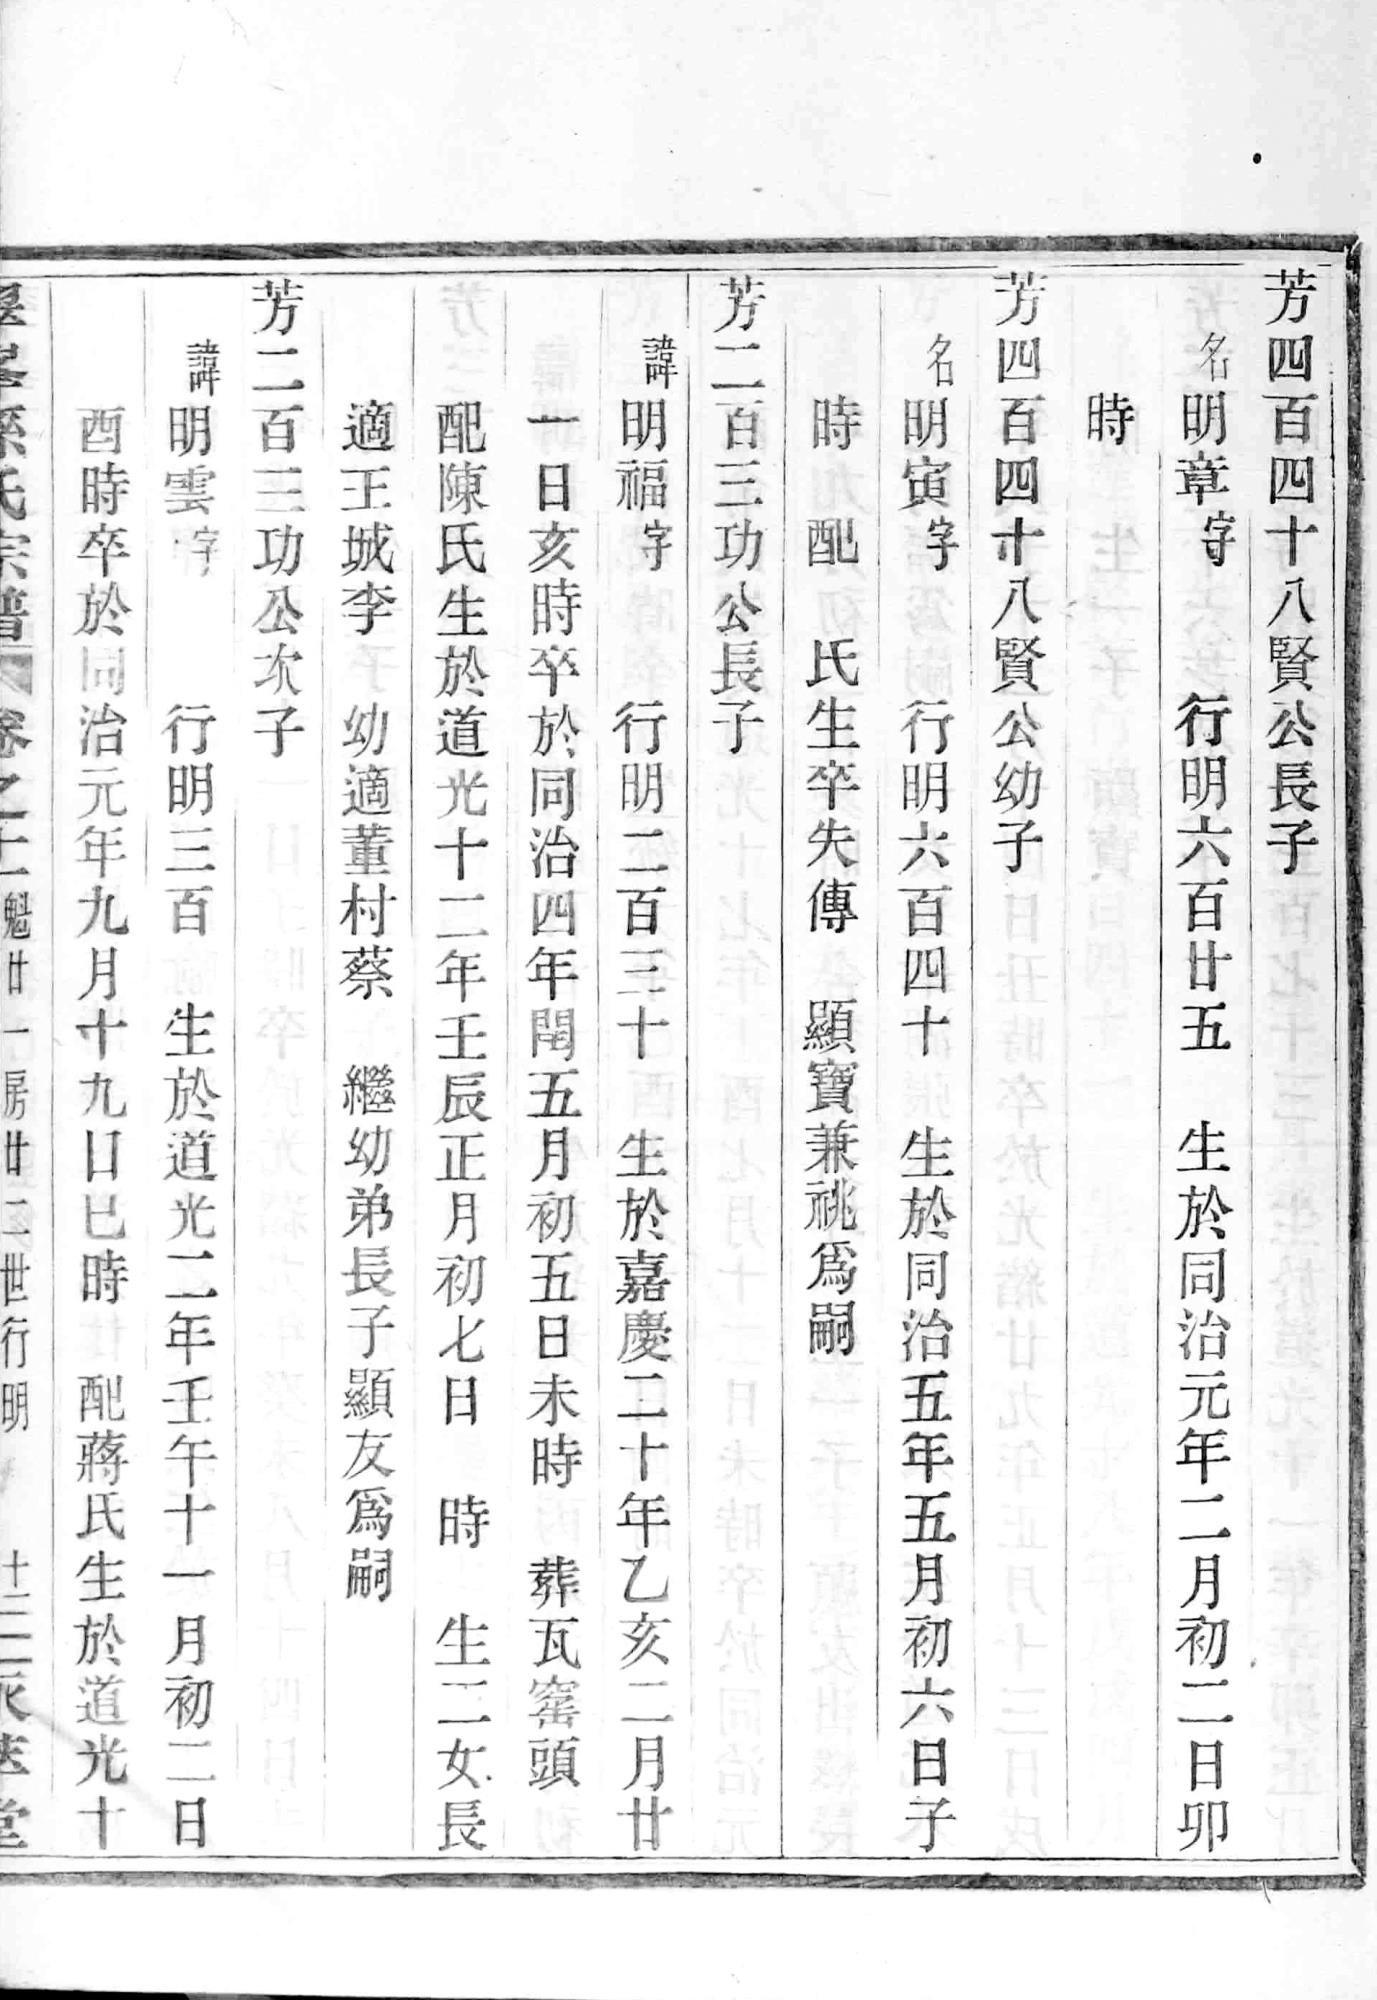 芳四百四十八賢公長子
名明章字 行明六百廿五 生於同治元年二月初二日卯
時
芳四百四十八賢公幼子
名明寅字 行明六百四十 生於同治五年五月初六日子
時 配 氏生卒失傳 顯寶兼祧爲嗣
芳二百三功公長子
諱明福字 行明二百三十 生於嘉慶二十年乙亥二月廿
一日亥時卒於同治四年閏五月初五日未時 葬瓦窰頭
配陳氏生於道光十二年壬辰正月初七日 時 生二女長
適王城李 幼適董村蔡 繼幼弟長子顯友爲嗣
芳二百三功公次子
諱明雲字 行明三百 生於道光二年壬午十一月初二日
酉時卒於同治元年九月十九日巳時 配蔣氏生於道光十
孫氏宗譜 卷之十一 魁廿一房廿二世行明 十二 堂